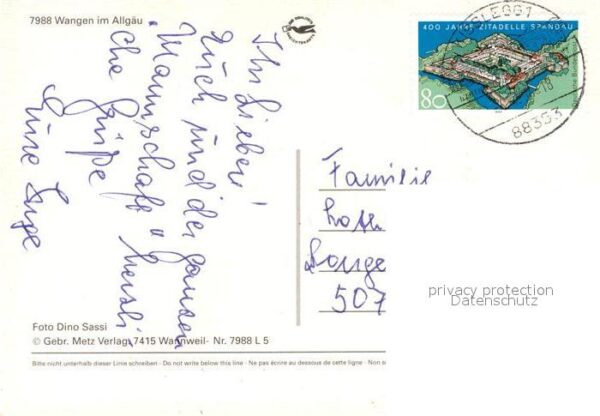 7988 Wangen im Allgäu
400 JAHRE ZITADELLE SPANDAU
80
88353
Ihr Lieben!
Euch und der ganzen
Mannschaft herzli
che Grüße
Eure Inge
Familie
Loth
Lange
507
privacy protection
Datenschutz
Foto Dino Sassi
© Gebr. Metz Verlag, 7415 Wannweil- Nr. 7988 L 5
Bitte nicht unterhalb dieser Linie schreiben - Do not write below this line - Ne pas écrire au dessous de cette ligne - Non s